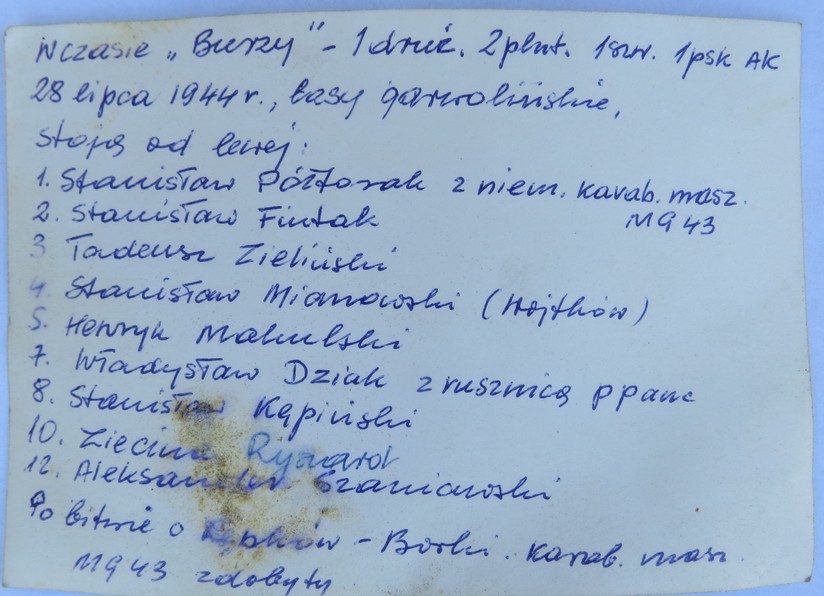 W czasie „Burzy" - 1 druż. 2 plut. 1 szw. 1 psk AK
28 lipca 1944 r., Lasy garwolińskie,
Stoją od lewej:
1. Stanisław Półtorak z niem. karab. masz.
MG 43
2. Stanisław Fiutak
3 Tadeusz Zieliński
4. Stanisław Mianowski (Wojtków)
5. Henryk Makulski
7. Władysław Dziak z rusznicą ppanc
8. Stanisław Kąpiński
10. Ryszard
12. Aleksander Szaniawski
Po bitwie o - Borki. karab. masz.
MG 43 zdobyty